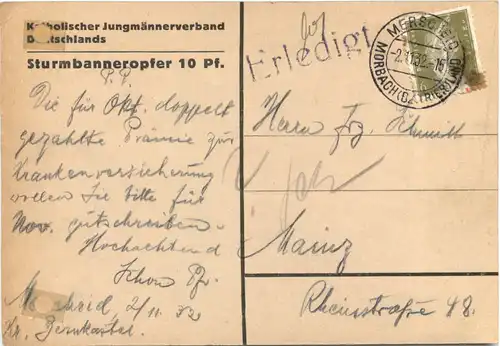 Katholischer Jungmännerverband
Deutschlands
Sturmbanneropfer 10 Pf.
P.P.
Die für Okt. doppelt
gezahlte Prämie zur
Krankenversicherung
wollen Sie bitte für
Nov. gutschreiben.
Hochachtend
Schon Pfr.
Merscheid 2/11 32
Kr. Bernkastel.
Erledigt
MERSCHEID
-2.11.32-
MORBACH (BZ.TRIER) LAND
Herrn Frz. Schmitt
Mainz
Rheinstraße 48.